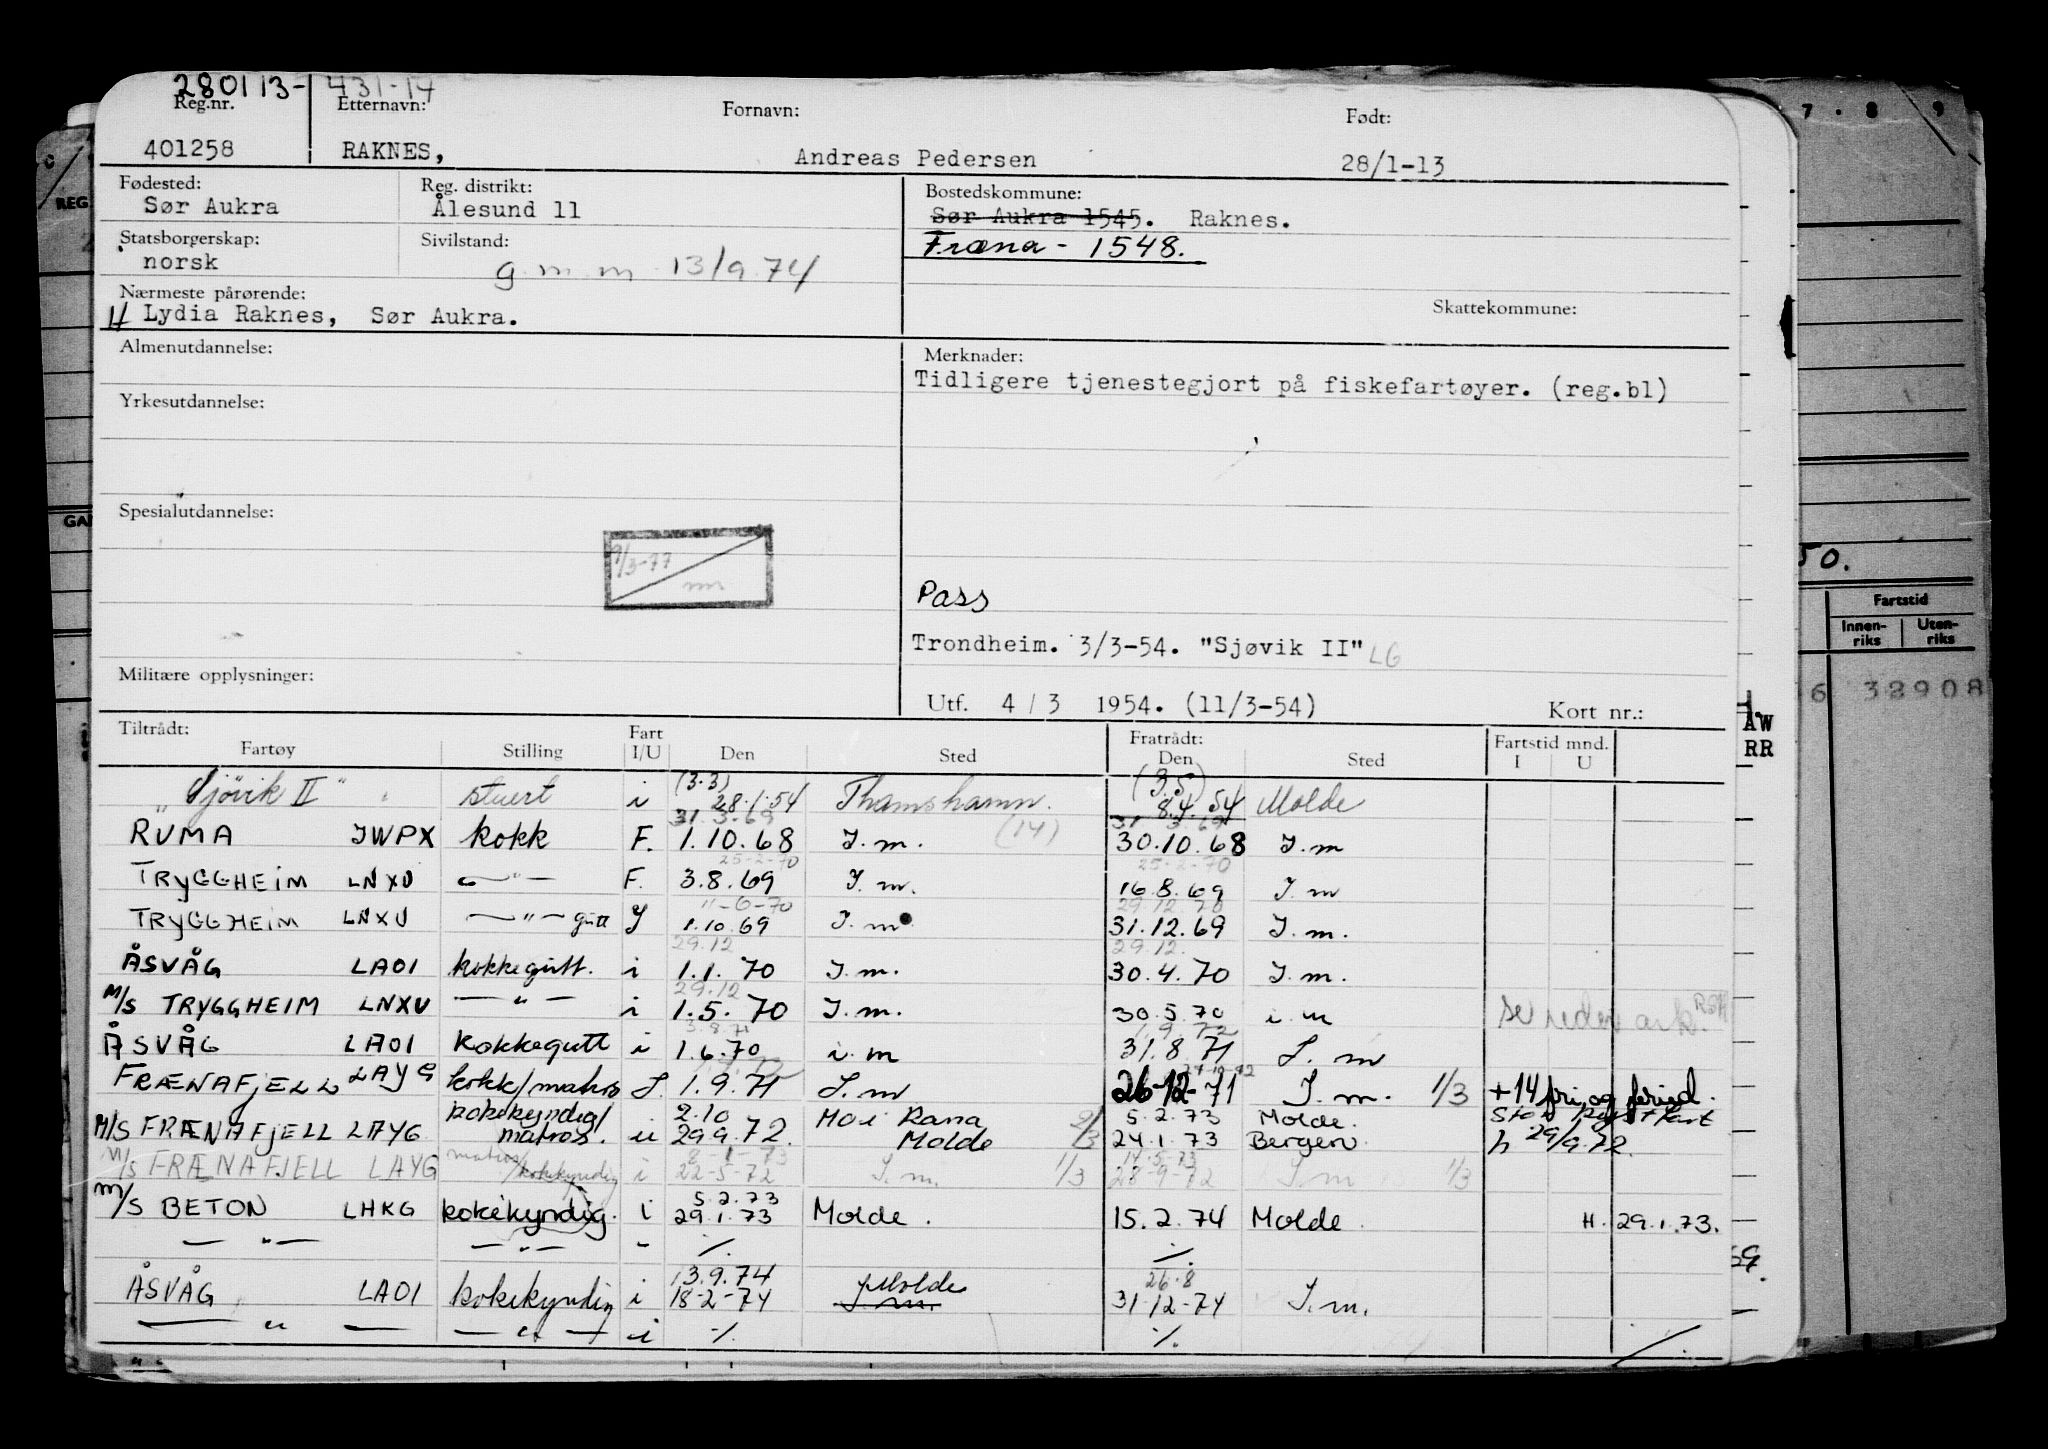 280113- 431-14
Reg.nr. Etternavn: Fornavn: Født:
401258 RAKNES, Andreas Pedersen 28/1-13
Fødested: Reg. distrikt: Bostedskommune:
Sør Aukra Ålesund 11 Sør Aukra 1545. Raknes.
Statsborgerskap: Sivilstand: Fræna - 1548.
norsk g.m.m. 13/9.74
Nærmeste pårørende: Skattekommune:
H Lydia Raknes, Sør Aukra.
Almenutdannelse: Merknader:
Tidligere tjenestegjort på fiskefartøyer. (reg.bl)
Yrkesutdannelse:
Spesialutdannelse:
9/3-77
Pass
Trondheim. 3/3-54. "Sjøvik II" LG
Militære opplysninger:
Utf. 4 / 3 1954. (11/3-54) Kort nr.:
Tiltrådt: Fart Fratrådt: Fartstid mnd.
Fartøy Stilling I/U Den Sted Den Sted I U
(3.3) (3.5)
"Sjøvik II" stuert i 28.1.54 Thamshamn. 8.4.54 Molde
31.3.69 31 3.69
RUMA JWPX kokk F. 1.10.68 I.m. (14) 30.10.68 I.m
25-2-70 25-2-70
TRYGGHEIM LNXU —"— F. 3.8.69 I.m. 16.8.69 I.m
11-6-70 29 12 70
TRYGGHEIM LNXU —"— gutt I 1.10.69 I.m 31.12.69 I.m.
29.12 29.12.
ÅSVÅG LAOI kokkegutt. i 1.1.70 I.m. 30.4.70 I.m.
29.12
M/S TRYGGHEIM LNXU —"— i 1.5.70 I.m. 30.5.70 i.m
3.8.71 1.9.72
ÅSVÅG LAOI kokkegutt i 1.6.70 i.m 31.8.71 I.m
FRÆNAFJELL LAYG kokk/matros I. 1.9.71 I.m 26-12-71 I.m. 1/3 +14 fri og feried.
kokekyndig/ 2.10 Mo i Rana 2/3 5.2.73 Molde.
M/S FRÆNAFJELL LAYG matros. u 29.9.72. Molde 24.1.73 Bergen. h 29/9.72.
8-1-73 14.5.73
M/S FRÆNAFJELL LAYG matros/kokekyndig i 22-5-72 I.m. 1/3 28-9-72 I.m 1/3
5.2.73
M/S BETON LHKG kokekyndig. i 29.1.73 Molde. 15.2.74 Molde. H. 29.1.73.
—"— —"— - ./. ./.
13.9.74 Molde 26.8
ÅSVÅG LAOI kokekyndig i 18-2-74 I.m. 31-12-74 I.m.
— " — —"— i ./. ./.
7 · 8 9
REG
GA
50.
Fartstid
Innen-riks Uten-riks
6 32908
ÅW
RR